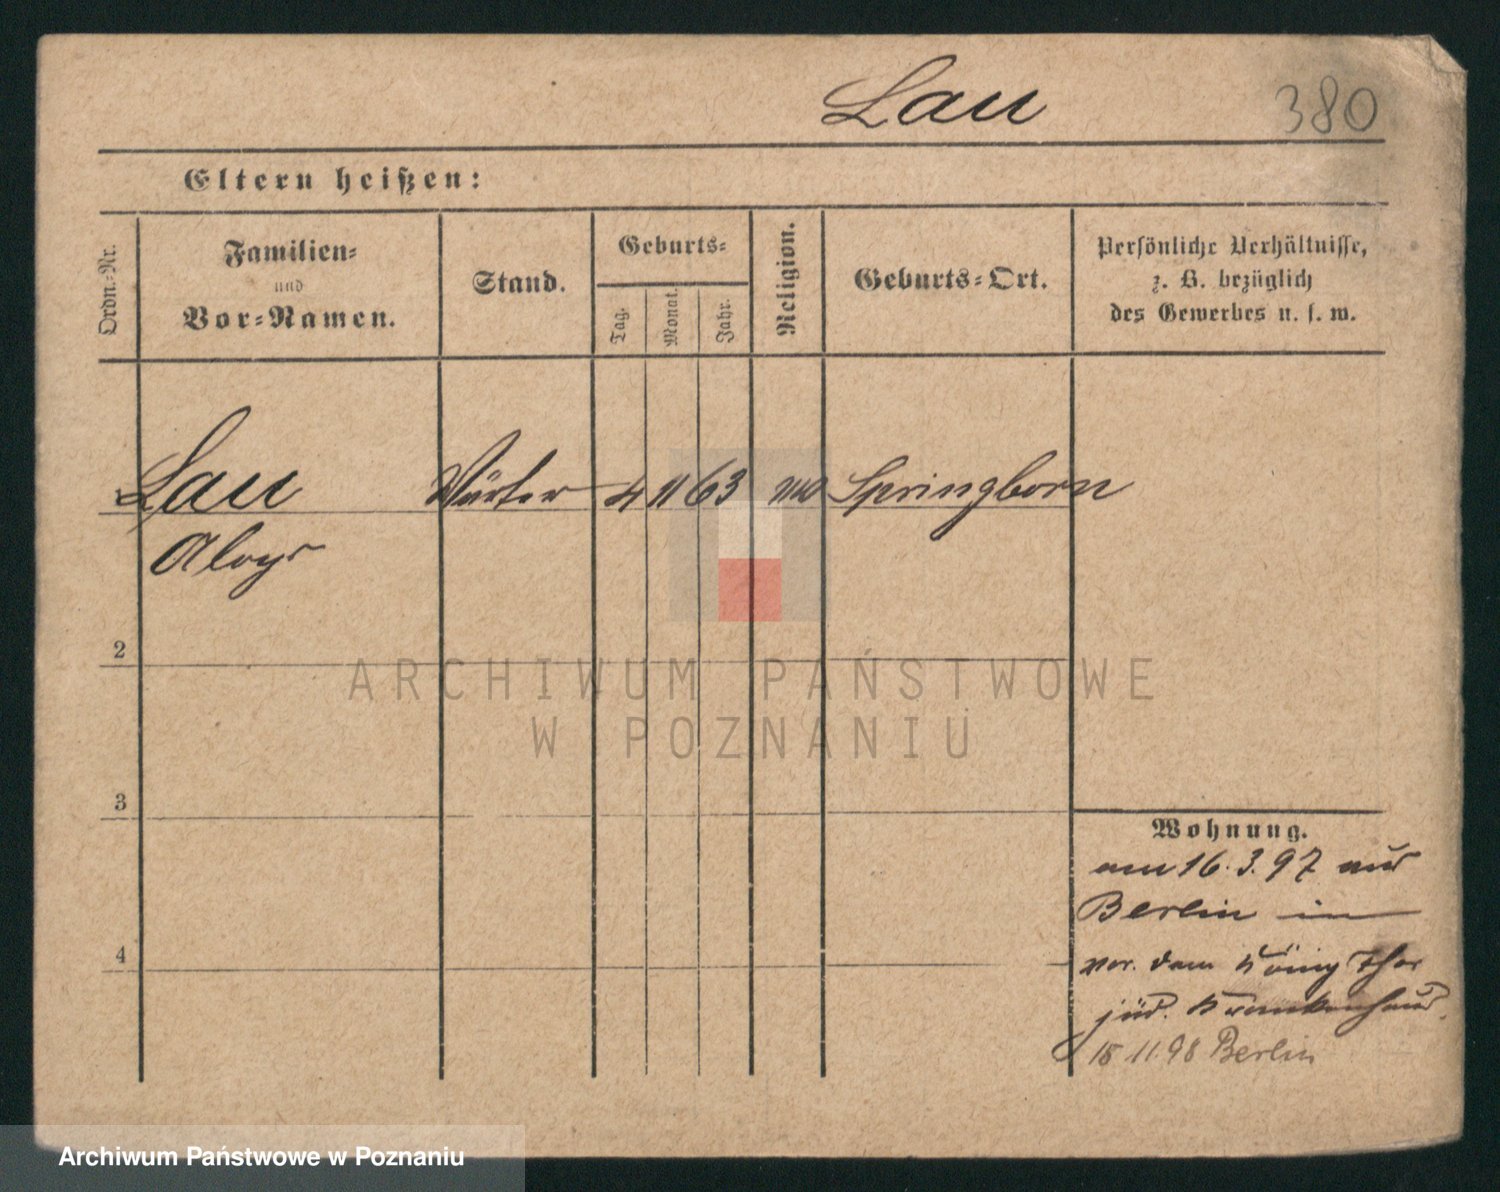 Lau 380
Eltern heißen:
Ordn.-Nr.
Familien-
und
Vor-Namen.
Stand.
Geburts-
Tag.
Monat.
Jahr.
Religion.
Geburts-Ort.
Persönliche Verhältnisse,
z. B. bezüglich
des Gewerbes u. s. w.
Lau Wärter 4 11 63 Springborn
Aloys
2
3
4
Wohnung.
am 16.3.97 aus
Berlin in
vor. dem König Thor
jüd. Krankenhaus.
18 11.98 Berlin
ARCHIWUM PAŃSTWOWE
W POZNANIU
Archiwum Państwowe w Poznaniu